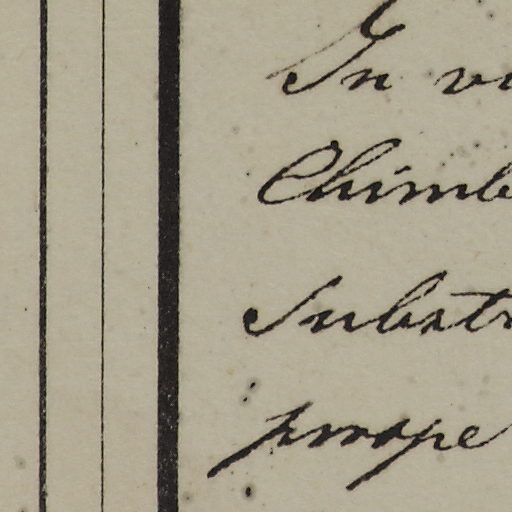 In vi
Chimb
Substr
prope